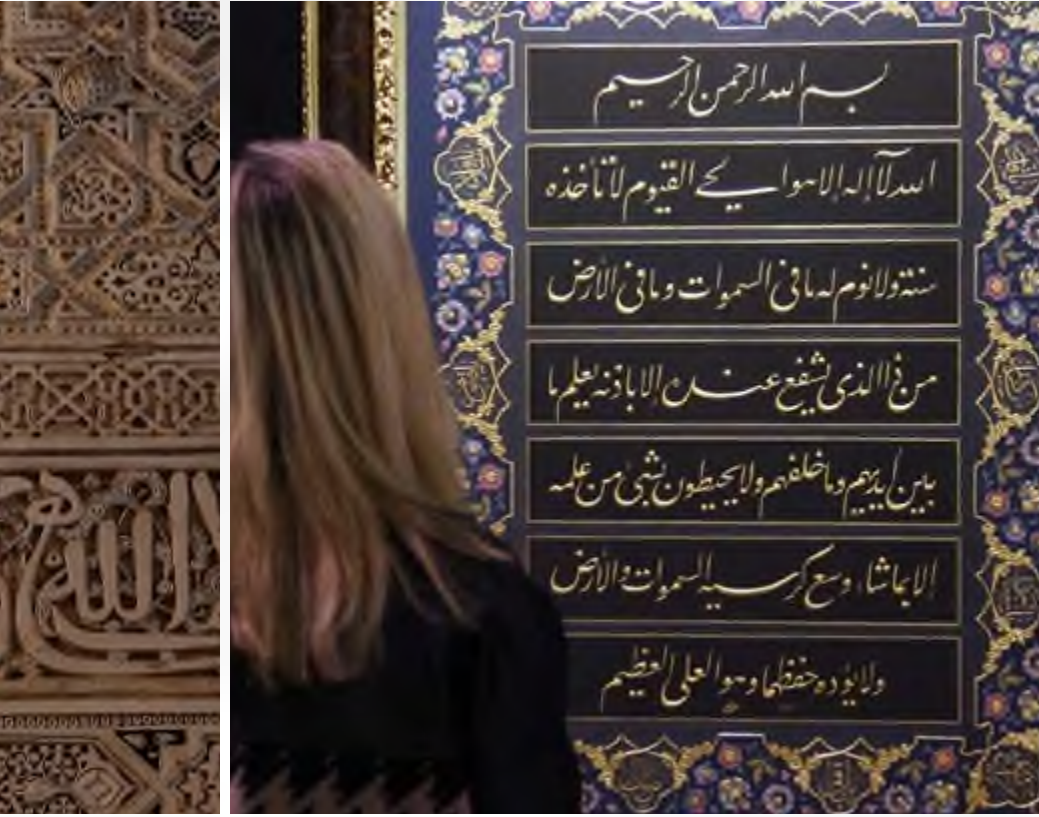 بسم الله الرحمن الرحيم
الله لا إله إلا هو الحي القيوم لا تأخذه
سنة ولا نوم له ما في السموات وما في الأرض
من ذا الذي يشفع عنده إلا بإذنه يعلم ما
بين أيديهم وما خلفهم ولا يحيطون بشيء من علمه
إلا بما شاء وسع كرسيه السموات والأرض
ولا يؤده حفظهما وهو العلي العظيم
الله